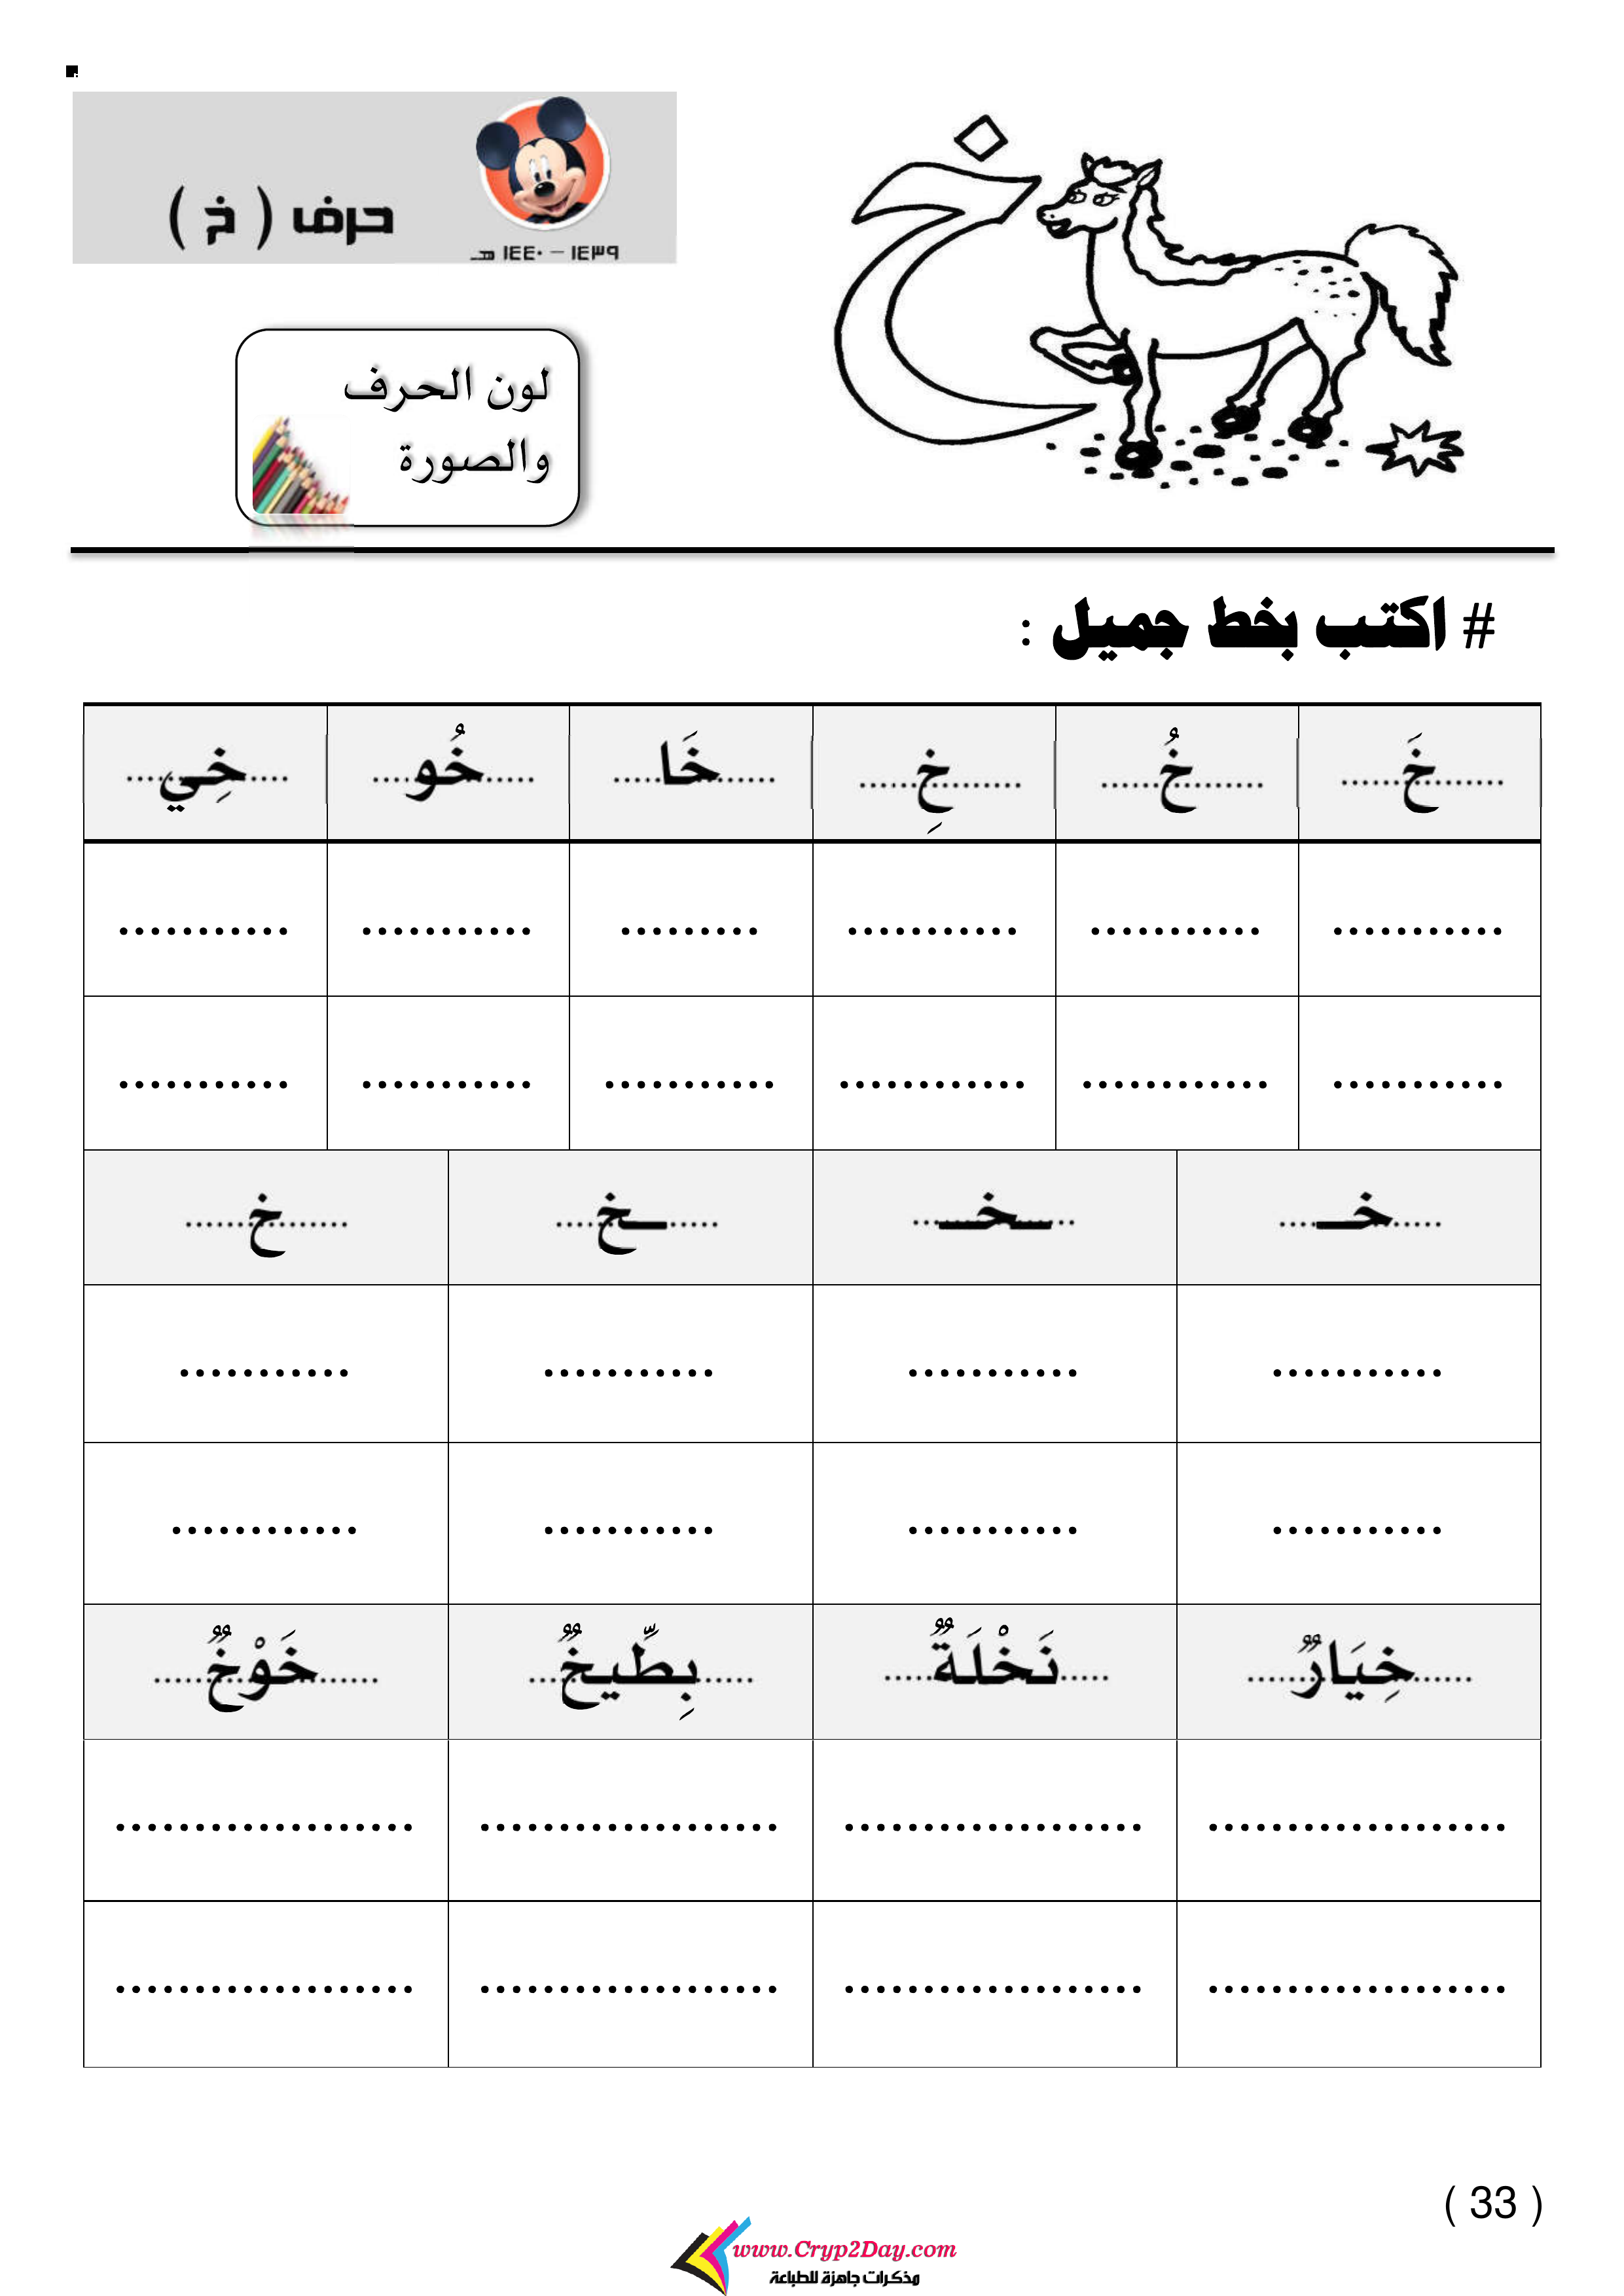 حرف ( خ )
١٤٣٩ – ١٤٤٠ هـ
خ
لون الحرف
والصورة
# اكتب بخط جميل :
خَ خُ خِ خَا خُو خِي
خـ ـخـ ـخ خ
خِيَارٌ نَخْلَةٌ بِطِّيخٌ خَوْخٌ
( 33 )
www.Cryp2Day.com
مذكرات جاهزة للطباعة